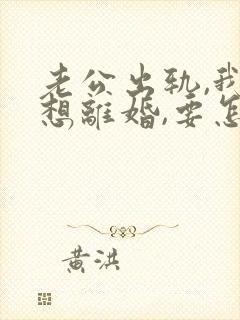 老公出轨,我
想離婚,要怎
黄洪